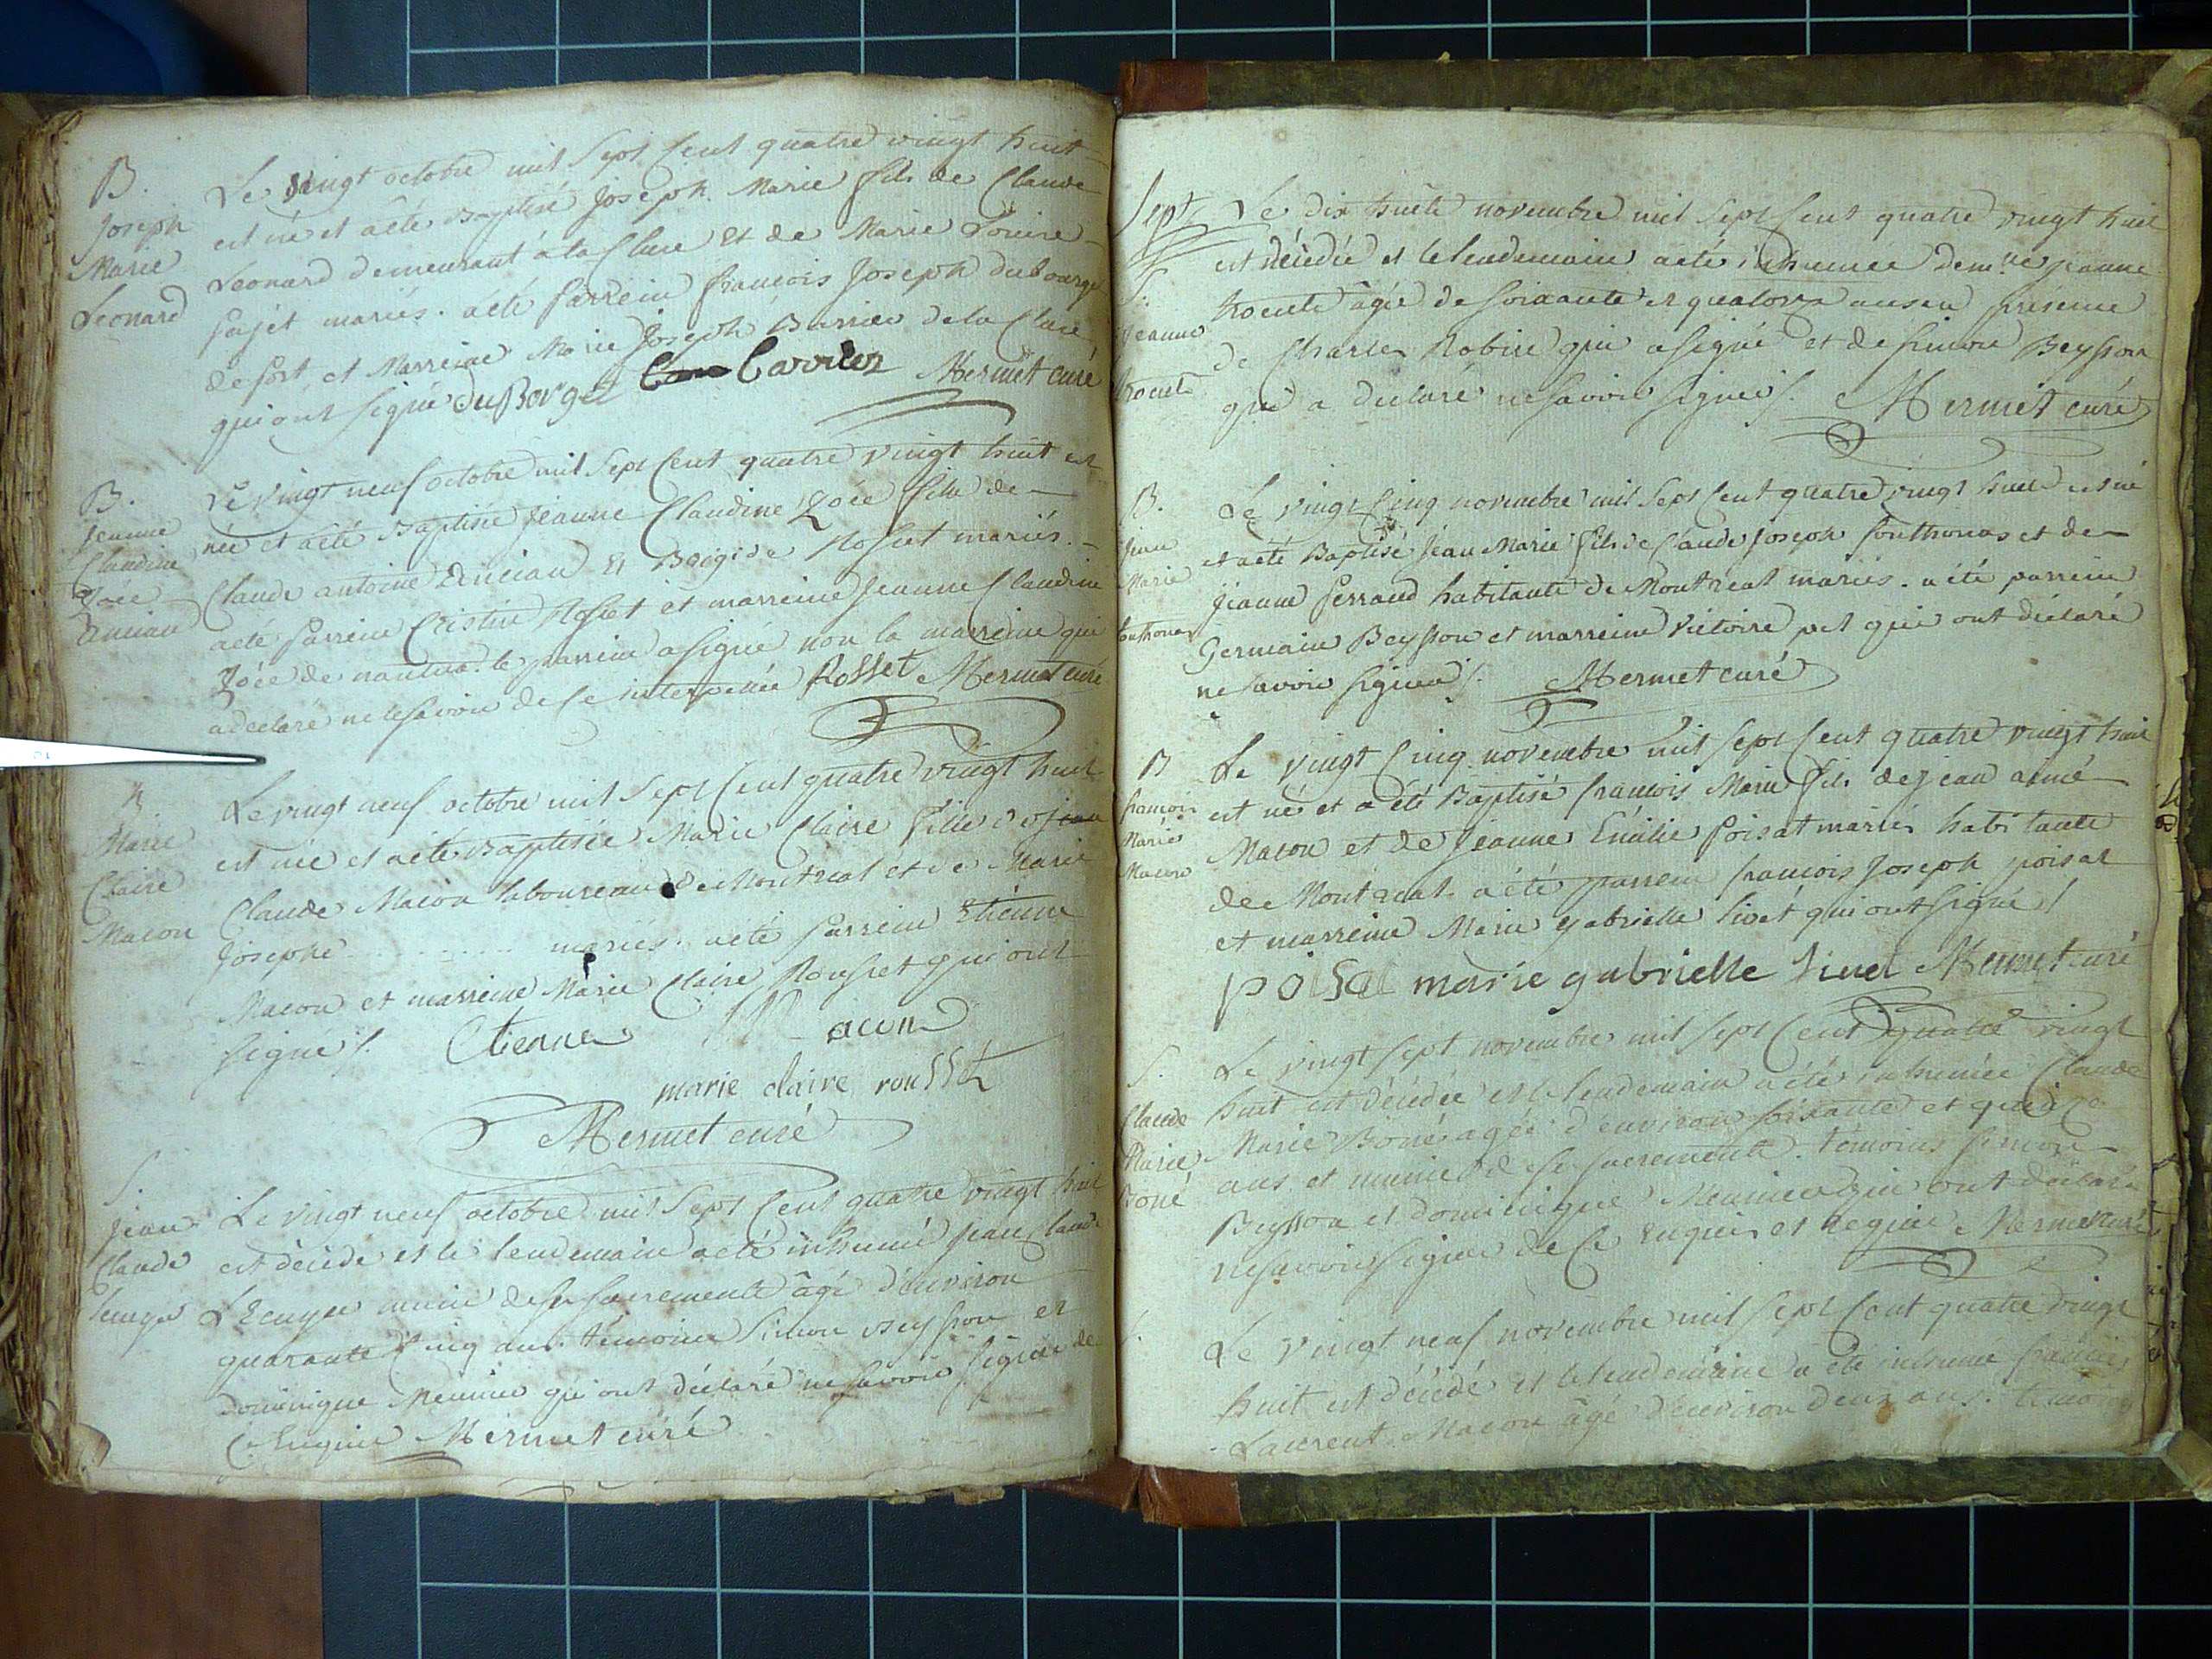 B.
Joseph
Marie
Leonard
Le vingt octobre mil sept cent quatre vingt huit
est né et a été Baptisé Joseph Marie fils de Claude
Leonard demeurant à la Cluse et de Marie Louise
pajet mariés. a été parrein françois Joseph dubourget
de port et Marreine Marie Joseph Barrier de la Cluse
qui ont signé duBorget Carrier Mermet curé
B.
Jeanne
Claudine
Zoée
Le vingt neuf octobre mil sept cent quatre vingt huit est
née et a été Baptisée Jeanne Claudine Zoée fille de
Claude antoine et Brigide Rosset mariés.
a été parrein Cristin Rosset et marreine Jeanne Claudine
Zoée de nantua. le parrein a signé non la marreine qui
a declaré ne le savoir de ce interpellée Rosset Mermet curé
B
Marie
Claire
Macon
Le vingt neuf octobre mil sept cent quatre vingt huit
est née et a été Baptisée Marie Claire fille de jean
Claude Macon laboureur de Montreal et de Marie
Josephe .......... mariés. a été parrein Etienne
Macon et marreine Marie Claire Rousset qui ont
signés. Etienne Macon
marie claire rousset
Mermet curé
S.
jean
Claude
Le vingt neuf octobre mil sept cent quatre vingt huit
est décédé et le lendemain a été inhumé jean Claude
Lecuyer munie de ses sacrements âgé d'environ
quarante cinq ans. témoins Simon Beysson et
Dominique Meunier qui ont déclaré ne savoir signer de
ce Enquis Mermet curé
Septre
S.
Jeanne
Le dix huit novembre mil sept cent quatre vingt huit
est décédée et le lendemain a été inhumée demlle jeanne
âgée de soixante et quatorze ans en présence
de Charles Robin qui a signé et de simon Beysson
qui a declaré ne savoir signer. Mermet curé
B.
Jean
Marie
Le vingt cinq novembre mil sept cent quatre vingt huit est né
et a été Baptisé Jean Marie fils de Claude Joseph fonthonas et de
Jeanne perraud habitants de Montreal mariés. a été parrein
Germain Beysson et marreine Victoire qui ont déclaré
ne savoir signer. Mermet curé
B
françois
Marie
Macon
Le vingt cinq novembre mil sept cent quatre vingt huit
est né et a été Baptisé françois Marie fils de jean aimé
Macon et de Jeanne Emilie poisat mariés habitants
de Montreal. a été parrein françois Joseph poisat
et marreine Marie gabrielle livet qui ont signé
poisat marie gabrielle livet Mermet curé
S.
Claude
Marie
Boné
Le vingt sept novembre mil sept cent quatre vingt
huit est décédée et le lendemain a été inhumée Claude
Marie Boné agée d'environ soixante et quinze
ans et munie de ses sacrements. témoins simon
Beysson et dominique Meunier qui ont déclaré
ne savoir signer de ce enquis et requis Mermet curé
S.
Le vingt neuf novembre mil sept cent quatre vingt
huit est décédé et le lendemain a été inhumé françois
Laurent Macon âgé d'environ deux ans. témoins